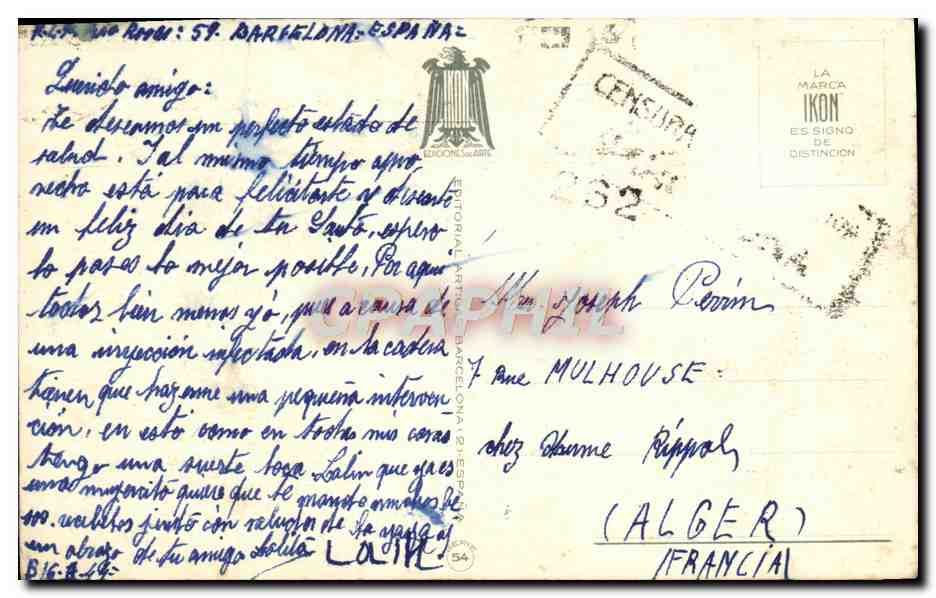 Rosas: 59. BARCELONA=ESPAÑA=
Querido amigo:
Te deseamos un perfecto estado de
salud. I al mismo tiempo apro,
vecho esta para felicitarte y desearte
un feliz dia de tu Santo, espero
lo pases lo mejor posible, Por aqui
todos bien menos yó, pues a causa de
una inyección infectada, en la cadera
tienen que hazerme una pequeña interven
ción, en esto como en todas mis cosas
tengo una suerte loca Lalin que ya es
una mujercita quiere que te mande muchos be
sos. recibelos junto con saludos de la yaya y
un abrazo de tu amigo Lolita
LaLin
B 16-3-49=
IKON
EDICIONES DE ARTE
EDITORIAL ARTIGAS BARCELONA (2) ESPAÑA
SERIE
54
CENSURA
252
LA
MARCA
IKON
ES SIGNO
DE
DISTINCION
Mr. Joseph Perrin
7 Rue MULHOUSE=
chez Madame Rippol,
(ALGER)
(FRANCIA)
CPAPHIL